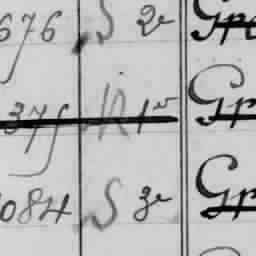 676 S 2e Gr
375 N 1er Gr
084 S 3e Gr